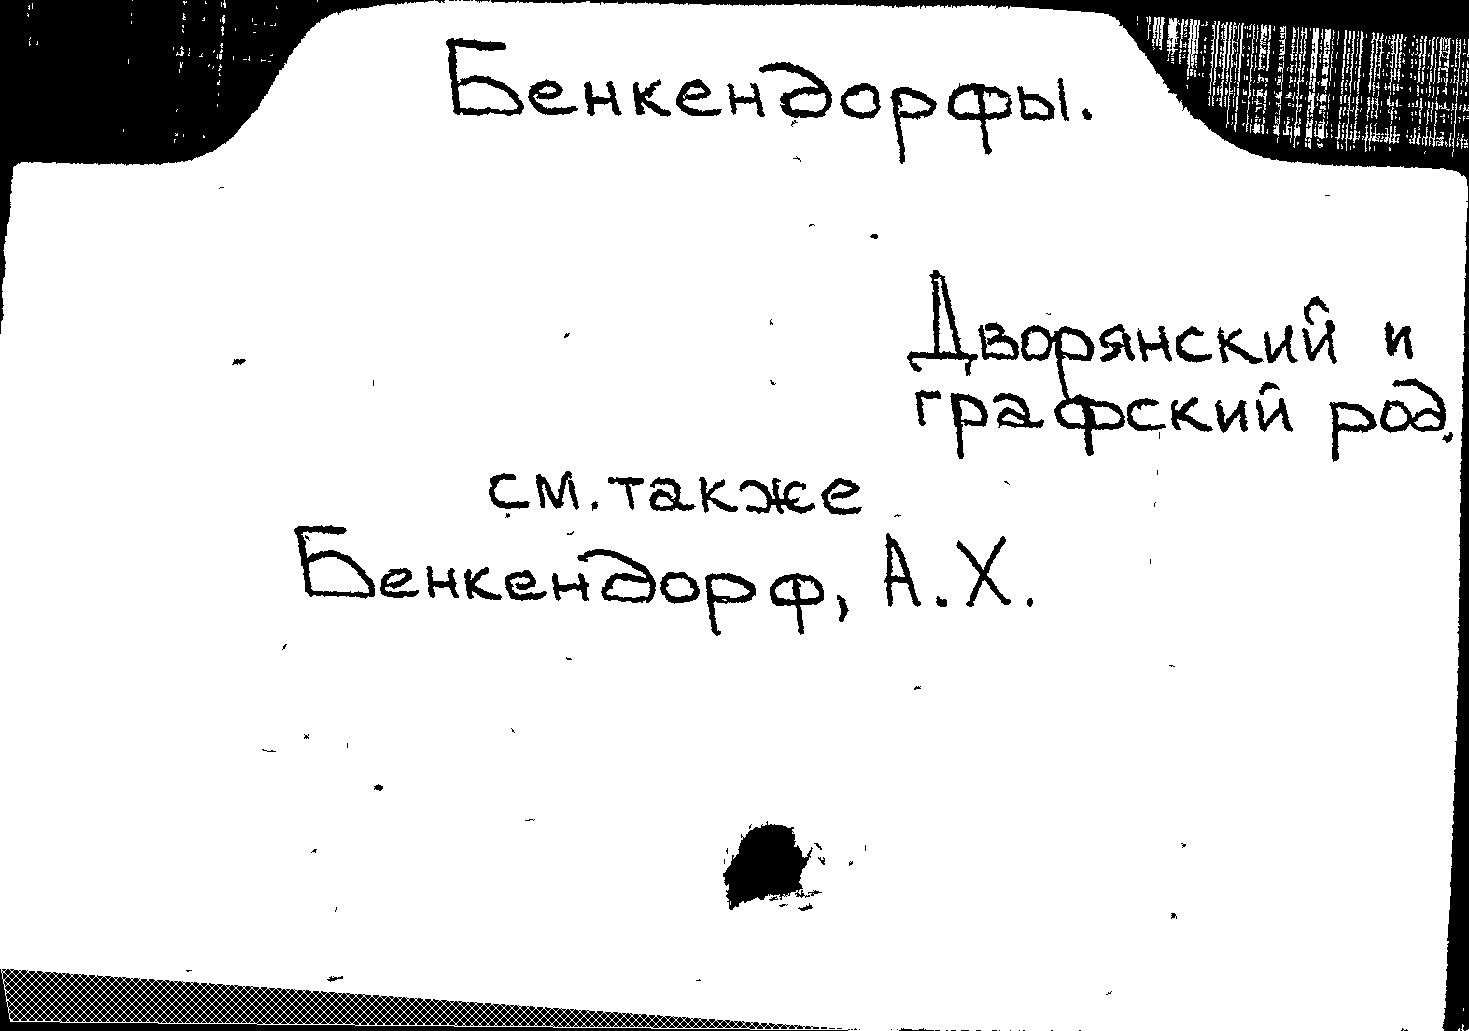 Бенкендорфы.
Дворянский и
графский род.
см. также
Бенкендорф, А. Х.